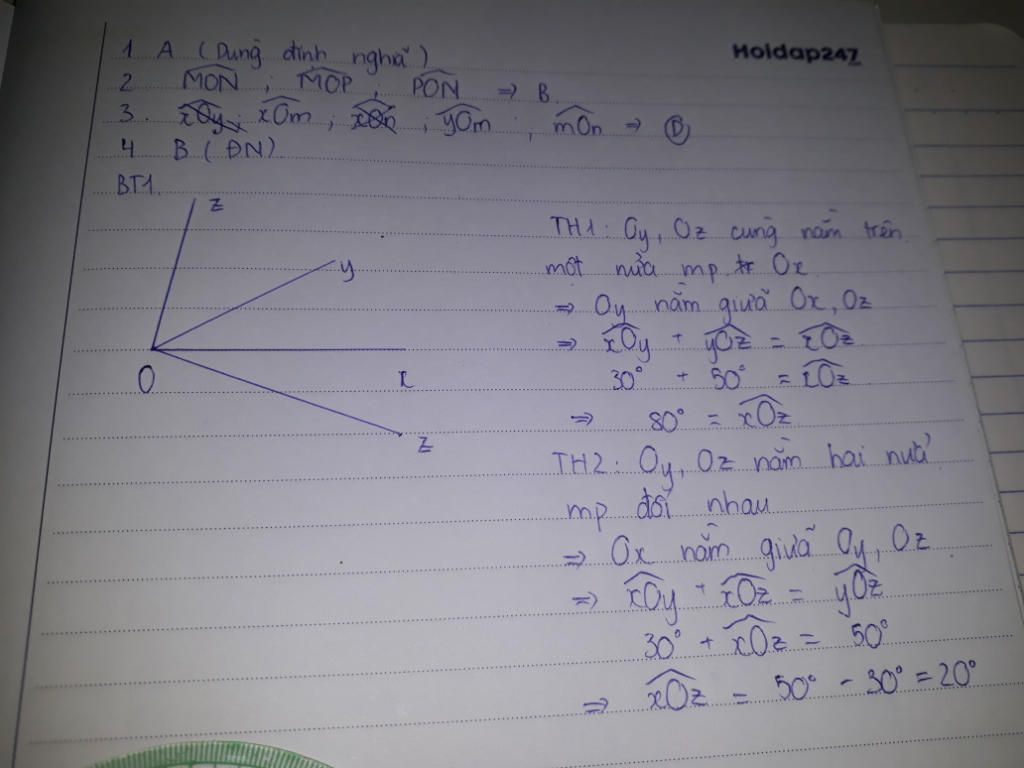 1 A (Dùng định nghĩa)
Hoidap247
2. MON ; MOP ; PON ⇒ B.
3. xOy ; xOm ; xOn ; yOm ; mOn ⇒ D
4 B (ĐN)
BT1.
z
y
O
x
z
TH1: Oy, Oz cùng nằm trên
một nửa mp Ox
⇒ Oy nằm giữa Ox, Oz
⇒ xOy + yOz = xOz
30° + 50° = xOz
⇒ 80° = xOz
TH2: Oy, Oz nằm hai nửa
mp đối nhau
⇒ Ox nằm giữa Oy, Oz
⇒ xOy + xOz = yOz
30° + xOz = 50°
⇒ xOz = 50° - 30° = 20°